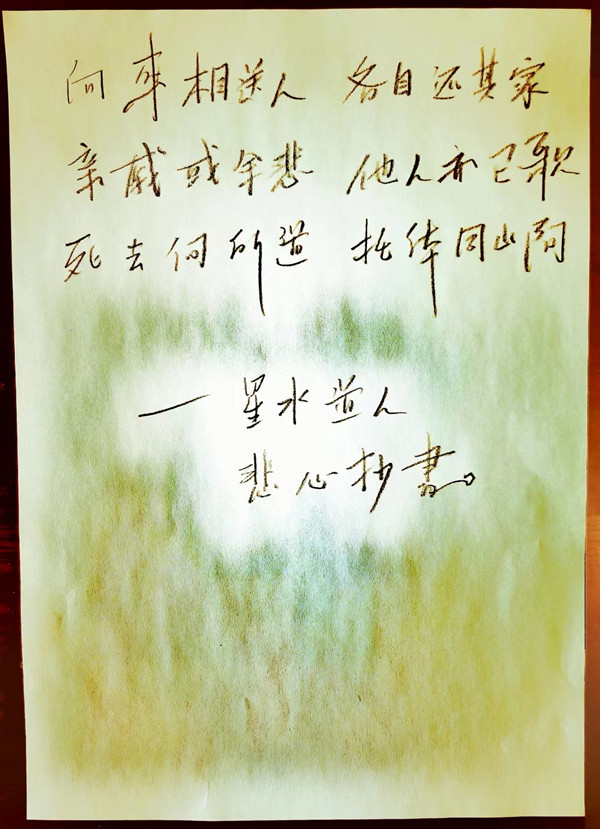 向来相送人 各自还其家
亲戚或余悲 他人亦已歌
死去何所道 托体同山阿
—星水道人
悲心抄书。